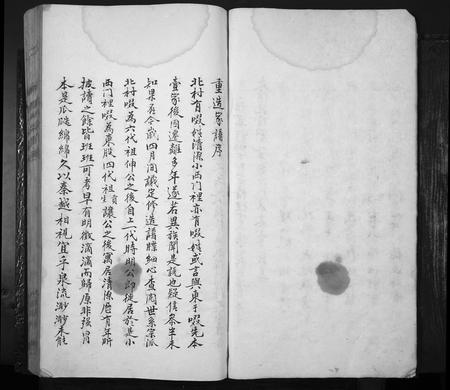 重造家譜序
北村有啜姓清源小西門裡亦有啜姓或言與東于啜先本
壹家後因遷離多年遂若異族聞是說也疑信參半未
知果否今歲四月間議定修造譜牒細心查閱世系宗派
北村啜為六代祖伸公之後自上代時明公即徙居於是小
西門裡啜為東股四代祖讓公之後寓居清源歷有年所
披讀之餘皆班班可考早有明徵滴滴而歸原非強冒
本是瓜瓞綿綿久以秦越相視宜乎泉流渺渺未能